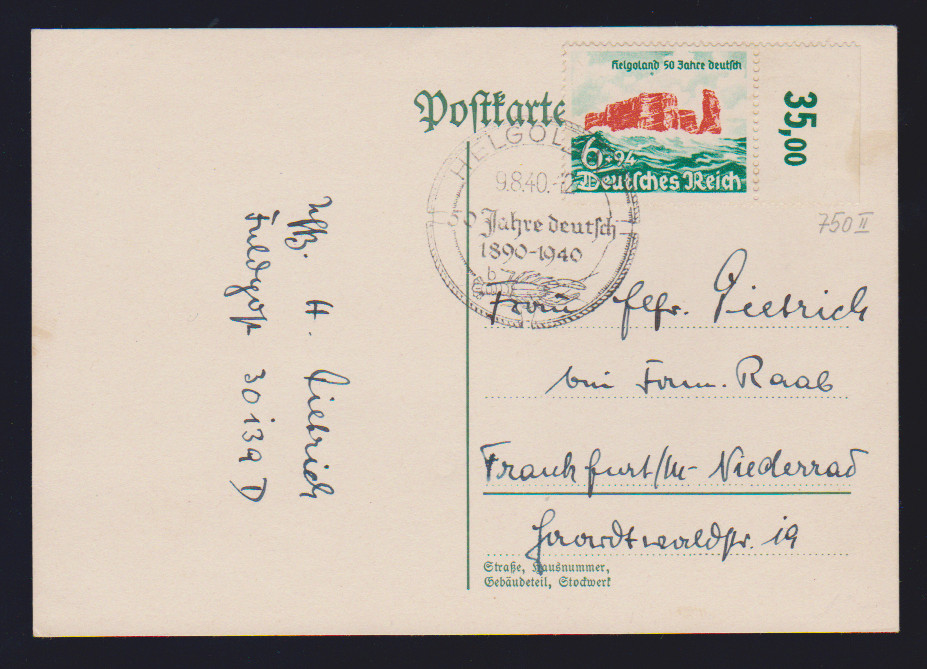 Postkarte
Helgoland 50 Jahre deutsch
6+94
Deutsches Reich
35,00
750 II
HELGOL
9.8.40.-12
50 Jahre deutsch
1890-1940
b
Frau Elfr. Dietrich
bei Fam. Raab
Frankfurt/M-Niederrad
Haardtwaldstr. 19
Straße, Hausnummer,
Gebäudeteil, Stockwerk
H. Dietrich
Feldpost 30139 D